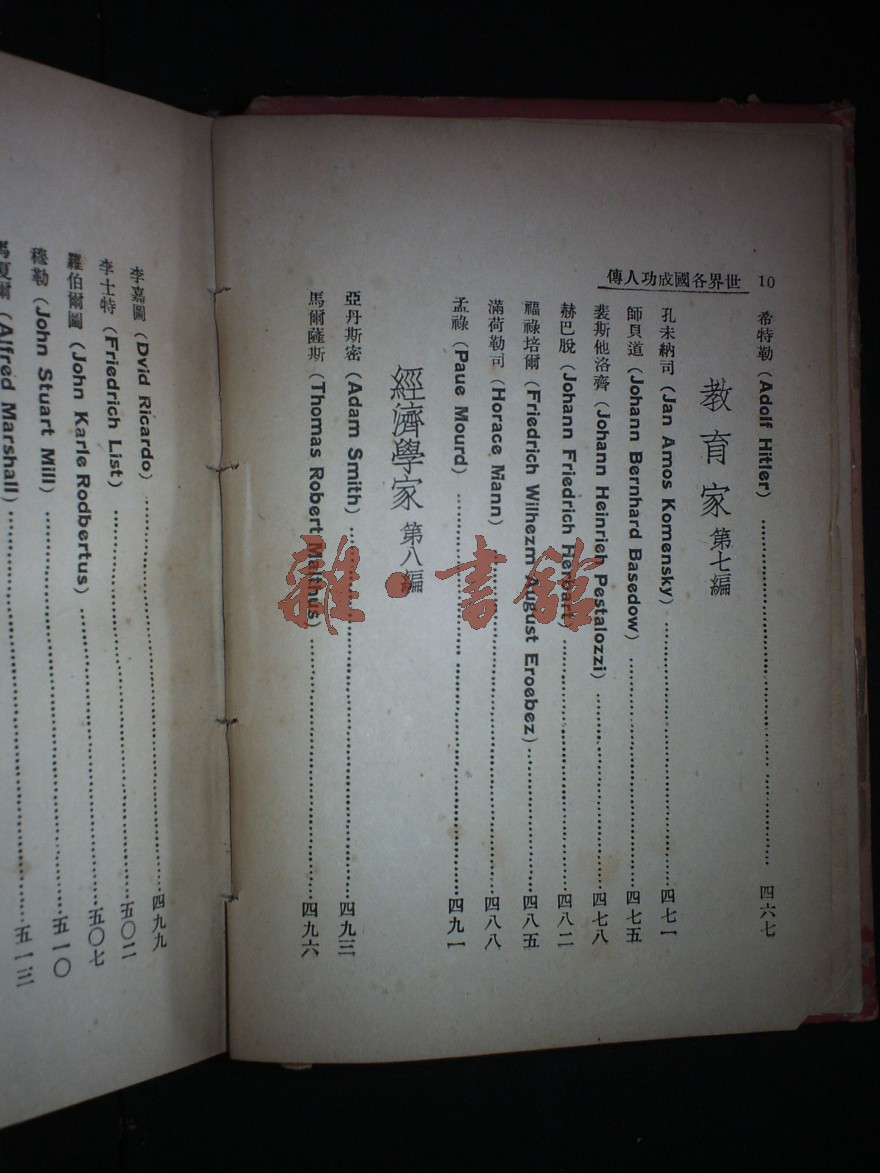 10 世界各國成功人傳
希特勒 (Adolf Hitler) 四六七
教育家 第七編
孔未納司 (Jan Amos Komensky) 四七一
師貝道 (Johann Bernhard Basedow) 四七五
裴斯他洛齊 (Johann Heinrich Pestalozzi) 四七八
赫巴脫 (Johann Friedrich Herbart) 四八二
福祿培爾 (Friedrich Wilhezm August Eroebez) 四八五
滿荷勒司 (Horace Mann) 四八八
孟祿 (Paue Mourd) 四九一
經濟學家 第八編
亞丹斯密 (Adam Smith) 四九三
馬爾薩斯 (Thomas Robert Malthus) 四九六
李嘉圖 (Dvid Ricardo) 四九九
李士特 (Friedrich List) 五〇二
羅伯爾圖 (John Karle Rodbertus) 五〇七
穆勒 (John Stuart Mill) 五一〇
馬夏爾 (Alfred Marshall) 五一三
雜·書館